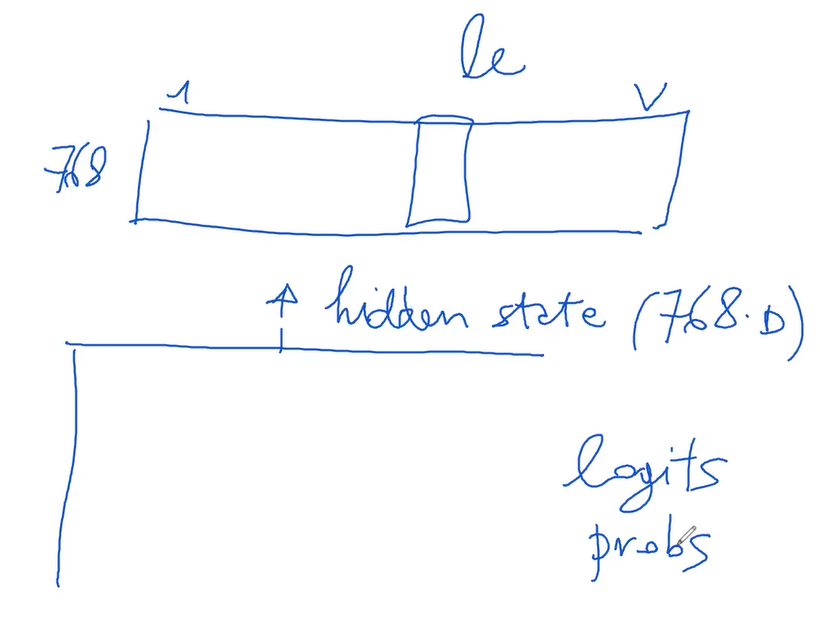 le
1 V
768
hidden state (768.D)
logits
probs